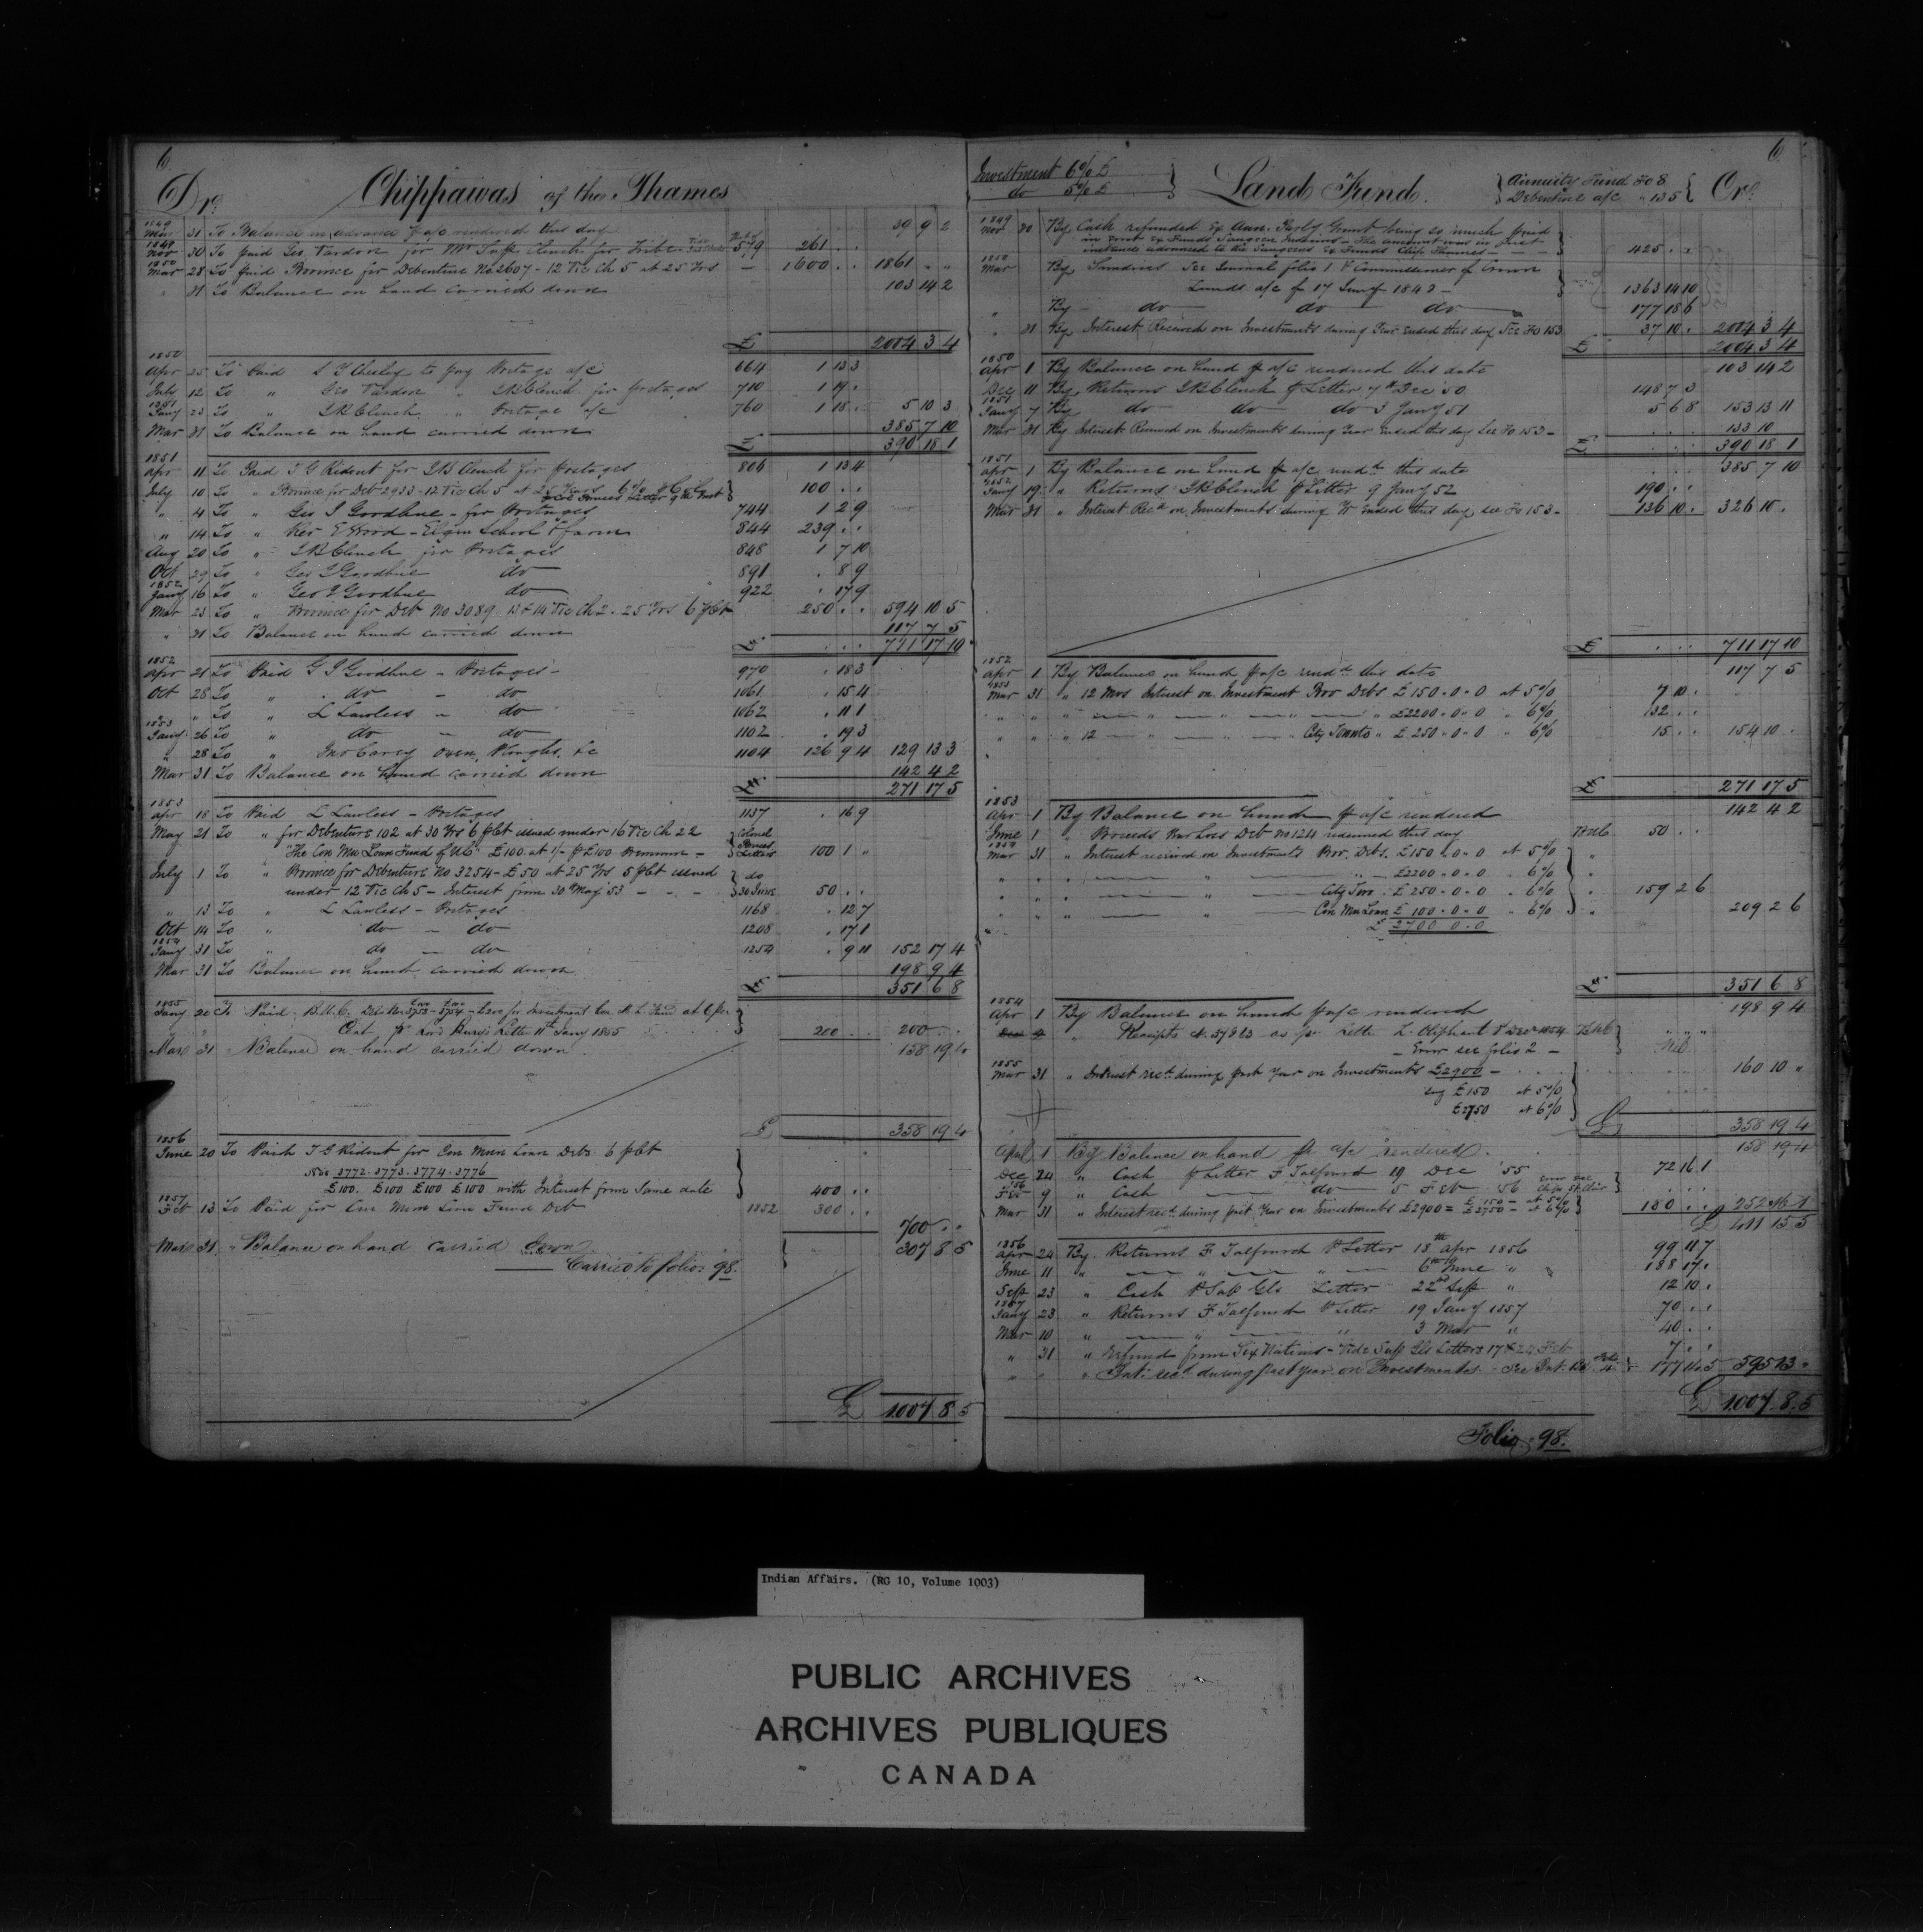 6
Dr. Chippawas of the Thames
1849 Mar 31 To Balance in advance p a/c rendered this day 39 9 2
1849 Nov 30 To paid Geo Vardon for Mr Supt Clench for Tribe 579 261 . .
1850 Mar 28 To paid Province for Debenture No 2607 - 12 Vic Ch 5 at 25 Yrs — 1600 . . 1861 " "
" 31 To Balance on hand carried down 103 14 2
£ 2004 3 4
1850
Apr 25 To Paid S Y Chesley to pay Postage a/c 664 1 13 3
July 12 To " Geo Vardon " JB Clench for postages 710 1 19 .
1851 Jany 23 To " JB Clench " Postage a/c 760 1 18 . 5 10 3
Mar 31 To Balance on hand carried down 385 7 10
£ 390 18 1
1851
Apr 11 To Paid T G Ridout for JB Clench for postages 806 1 13 4
July 10 To " Province for Deb 2933 - 12 Vic Ch 5 at 25 Years 6% 100 . .
" 4 To " Geo J Goodhue - for Postages 744 1 2 9
" 14 To " Rev E Wood - Elgin School & farm 844 239 . .
Aug 20 To " JB Clench for Postages 848 1 7 10
Oct 29 To " Geo J Goodhue do 891 . 8 9
1852 Jany 16 To " Geo J Goodhue do 922 . 17 9
Mar 23 To " Province for Deb No 3089. 13 & 14 Vic Ch 2. 25 Yrs 6 pCt 250 . . 594 10 5
" 31 To Balance on hand carried down 117 7 5
£ . . . 711 17 10
1852
Apr 21 To Paid G J Goodhue - Postages - 970 . 18 3
Oct 28 To " do - do 1061 . 15 4
" " To " L Lawless - do 1062 . 11 1
1853 Jany 26 To " do - do 1102 . 19 3
" 28 To " Jno Carey Oxen, Ploughs, &c 1104 126 9 4 129 13 3
Mar 31 To Balance on hand carried down 142 4 2
£ 271 17 5
1853
Apr 18 To Paid L Lawless - Postages 1137 . 16 9
May 21 To " for Debenture 102 at 30 Yrs 6 pCt issued under 16 Vic Ch 22 Colonel
"The Con Mun Loan Fund of UC" £100 at 1/- p £100 Premium - Bruces Letters 100 1 "
July 1 To " Province for Debenture No 3254 - £50 at 25 Yrs 5 pCt issued do
under 12 Vic Ch 5 - Interest from 30 May '53 - - - 30 June 50 . .
" 13 To " L Lawless - Postages 1168 . 12 7
Oct 14 To " do - do 1208 . 17 1
1854 Jany 31 To " do - do 1254 . 9 11 152 17 4
Mar 31 To Balance on hand carried down 198 9 4
£ 351 6 8
1855
Jany 20 To Paid B.U.C. Deb Nos 3753 - 3754 - £200 for Investment Con. M. L. Fund at 6 per
Cent pr Lord Bury's Letter 11th Jany 1855 200 . . 200 . .
Mar 31 " Balance on hand carried down 158 19 4
£ 358 19 4
1856
June 20 To Paid T G Ridout for Con Mun Loan Debs 6 pCt
Nos 3772. 3773. 3774. 3776
£100. £100 £100 £100 with Interest from Same date 400 . .
1857 Feb 13 To Paid for Con Mun Loan Fund Deb 1852 300 . .
700 . .
Mar 31 " Balance on hand carried down 307 8 5
Carried to folio 98.
£ 1007 8 5
6
Investment 6% £
do 5% £
Land Fund.
Annuity Fund Fo 8
Debenture a/c " 135
Cr.
1849 Nov 30 By Cash refunded Ex Ann. Parly Grant being so much paid
in error Ex Funds Saugeen Indians - The amount was in first
instance advanced to the Saugeens Ex Funds Chip Thames - - - 425 . .
1850 Mar By Sundries See Journal folio 1 & Commissioner of Crown
Lands a/c of 17 Jany 1849 - 1363 14 10
" By do do do 177 18 6
" 31 By Interest Received on Investments during Year ended this day See Fo 153 37 10 . 2004 3 4
£ 2004 3 4
1850
Apr 1 By Balance on hand p a/c rendered this date 103 14 2
Dec 11 By Returns JB Clench p Letter 7th Dec '50 148 7 3
1851 Jany 7 By do do do 3 Jany 51 5 6 8 153 13 11
Mar 31 By Interest Received on Investments during Year Ended this day See Fo 153 - 133 10
£ 390 18 1
1851
Apr 1 By Balance on hand p a/c rendd this date 385 7 10
1852 Jany 19 " Returns JB Clench p Letter 9 Jany 52 190 . .
Mar 31 " Interest Recd on Investments during Yr Ended this day see Fo 153 - 136 10 . 326 10 .
£ . . . 711 17 10
1852
Apr 1 By Balance on hand p a/c rendd this date 117 7 5
1853 Mar 31 " 12 Mos Interest on Investment Prov Debs £ 150 . 0 . 0 at 5% 7 10 .
" " " — " — " — " £2200 . 0 . 0 " 6% 132 . .
" " " 12 — " — " — City Toronto " £ 250 . 0 . 0 " 6% 15 . . 154 10 .
£ 271 17 5
1853
Apr 1 By Balance on hand p a/c rendered 142 4 2
June 1 " Proceeds War Loss Deb No 1211 redeemed this day BUC 50 . .
1854 Mar 31 " Interest received on Investments Prov. Debs. £150 . 0 . 0 at 5%
" " " — " — £2200 . 0 . 0 " 6%
" " " — " — City Toro £ 250 . 0 . 0 " 6% 159 2 6
" " " — " — Con Mun Loan £ 100 . 0 . 0 " 6% 209 2 6
£ 2700 0 . 0
£ 351 6 8
1854
Apr 1 By Balance on hand p a/c rendered 198 9 4
" Receipts as pr Letter L. Oliphant 5 Decr 1854 BUC " " "
- Error see folio 2 - Nil
1855
Mar 31 " Interest recd during past Year on Investments £2900 - 160 10 "
£150 at 5%
£2750 at 6%
£ 358 19 4
April 1 By Balance on hand pr a/c rendered. 158 19 4
Dec 24 " Cash p Letter F Talfourd 19 Dec '55 72 16 1
'56 Feb 9 " Cash — do — 5 Feb '56 Error see Chips St Clair . . .
Mar 31 " Interest recd during past Year on Investments £2900 = £ 150 - at 5% £2750 - at 6% 180 . . 252 16 1
£ 411 15 5
1856
Apr 24 By Returns F Talfourd p Letter 18th Apr 1856 99 11 7
June 11 " — " — " — 6th June " 188 17 .
Sept 23 " Cash p Sup Gls Letter 22nd Sept " 12 10 .
1857 Jany 23 " Returns F Talfourd p Letter 19 Jany 1857 70 . .
Mar 10 " — " — " 3 Mar " 40 . .
" 31 " Refund from Six Nations - Vide Supt Gls Letters 17 & 24 Feb 7 . .
" " " Int: recd during past year on Investments - See Int. Folio 4 177 14 5 595 13 "
£ 1007. 8. 5
Folio 98.
Indian Affairs. (RG 10, Volume 1003)
PUBLIC ARCHIVES
ARCHIVES PUBLIQUES
CANADA